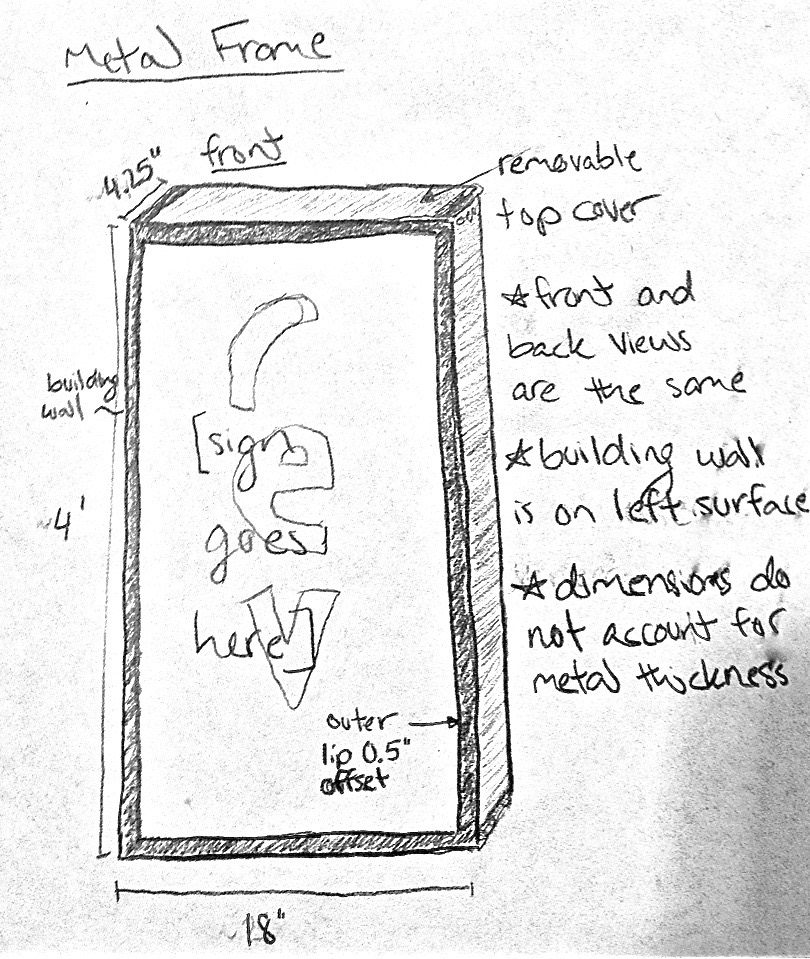 Metal Frame
front
~4.25"
removable
top cover
☆front and
back views
are the same
building
wall ~
[sign
goes
here]
☆building wall
is on left surface
~4'
☆dimensions do
not account for
metal thickness
outer
lip 0.5"
offset
~18"
r
e
v